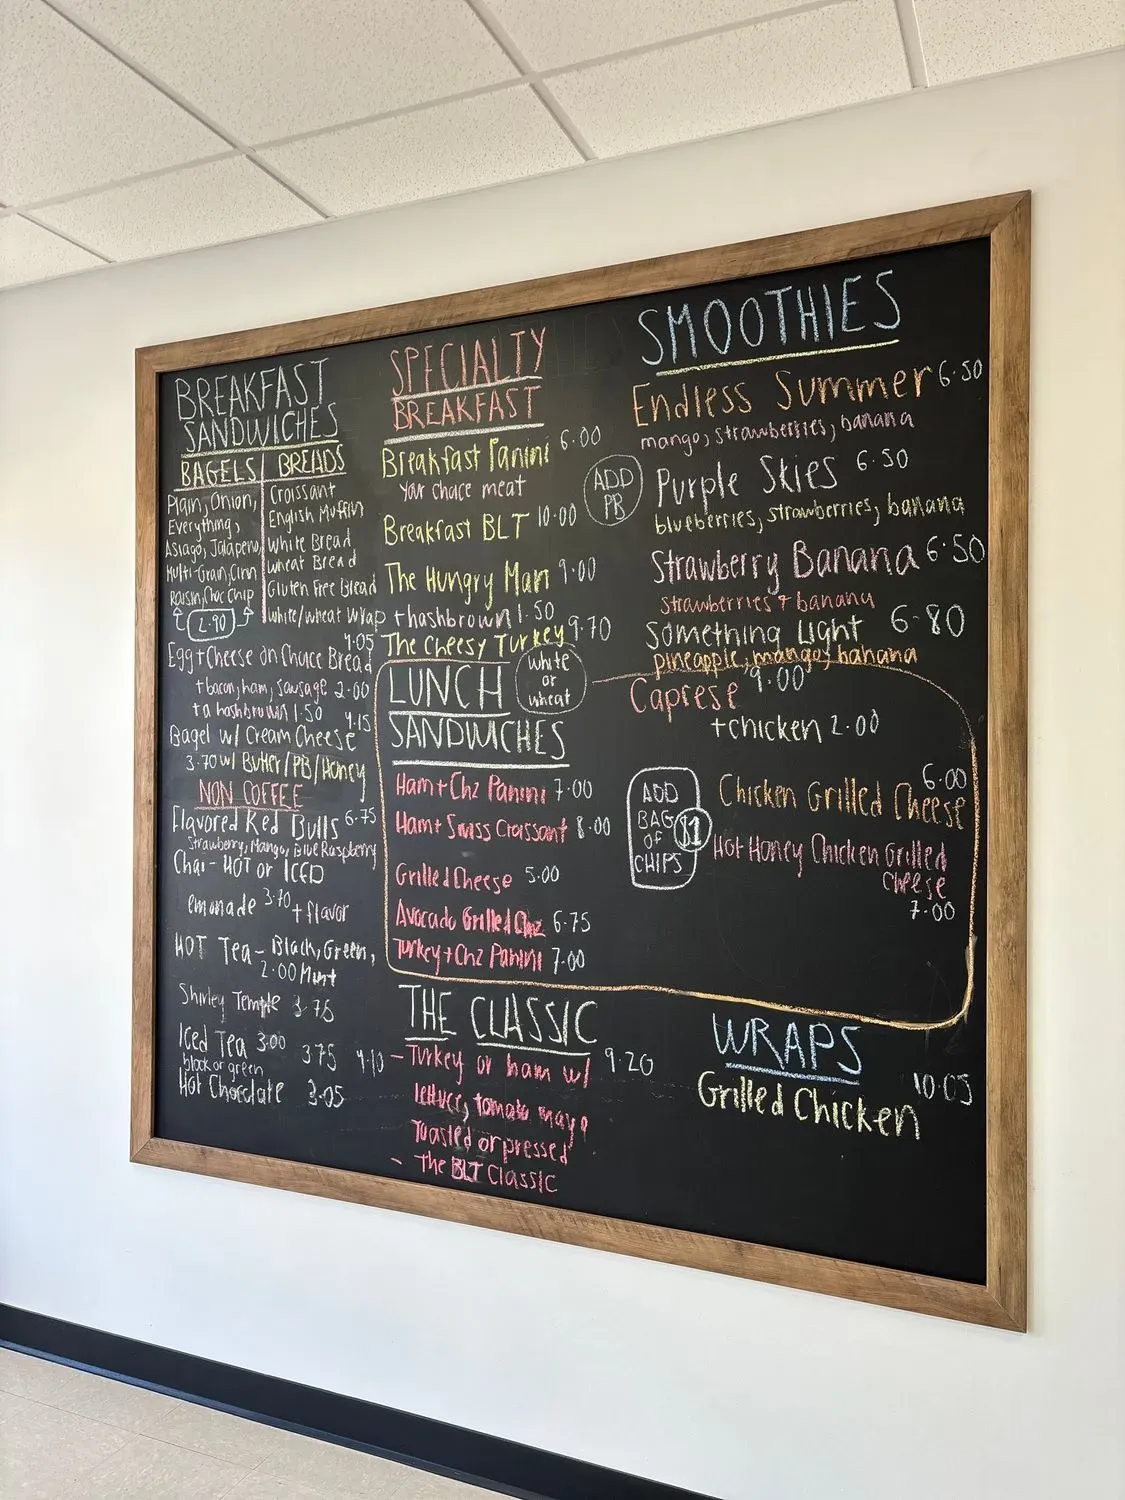 BREAKFAST
SANDWICHES
BAGELS
Plain, Onion,
Everything,
Asiago, Jalapeno,
Multi-Grain, Cinn
Raisin, Choc Chip
2.90
BREADS
Croissant
English Muffin
White Bread
Wheat Bread
Gluten Free Bread
White/Wheat Wrap
4.05
Egg + Cheese on Choice Bread
+ bacon, ham, sausage 2.00
+ a hashbrown 1.50
4.15
Bagel w/ Cream Cheese
3.70 w/ Butter/PB/Honey
NON COFFEE
Flavored Red Bulls 6.75
Strawberry, Mango, Blue Raspberry
Chai - HOT or ICED
emonade 3.70 + flavor
HOT Tea - Black, Green,
2.00 Mint
Shirley Temple 3.75
Iced Tea 3.00 3.75 4.10
black or green
Hot Chocolate 3.05
SPECIALTY
BREAKFAST
Breakfast Panini 6.00
your choice meat
Breakfast BLT 10.00
The Hungry Man 9.00
+ hashbrown 1.50
The Cheesy Turkey 9.70
LUNCH
SANDWICHES
white
or
wheat
Ham + Chz Panini 7.00
Ham + Swiss Croissant 8.00
Grilled Cheese 5.00
Avocado Grilled Chz 6.75
Turkey + Chz Panini 7.00
THE CLASSIC
- Turkey or ham w/ 9.20
lettuce, tomato mayo
Toasted or pressed
- The BLT Classic
SMOOTHIES
Endless Summer 6.50
mango, strawberries, banana
ADD
PR
Purple Skies 6.50
blueberries, strawberries, banana
Strawberry Banana 6.50
strawberries + banana
Something Light 6.80
pineapple, mango, banana
Caprese 9.00
+ chicken 2.00
ADD
BAG $1
OF
CHIPS
6.00
Chicken Grilled Cheese
Hot Honey Chicken Grilled
Cheese
7.00
WRAPS
Grilled Chicken 10.05